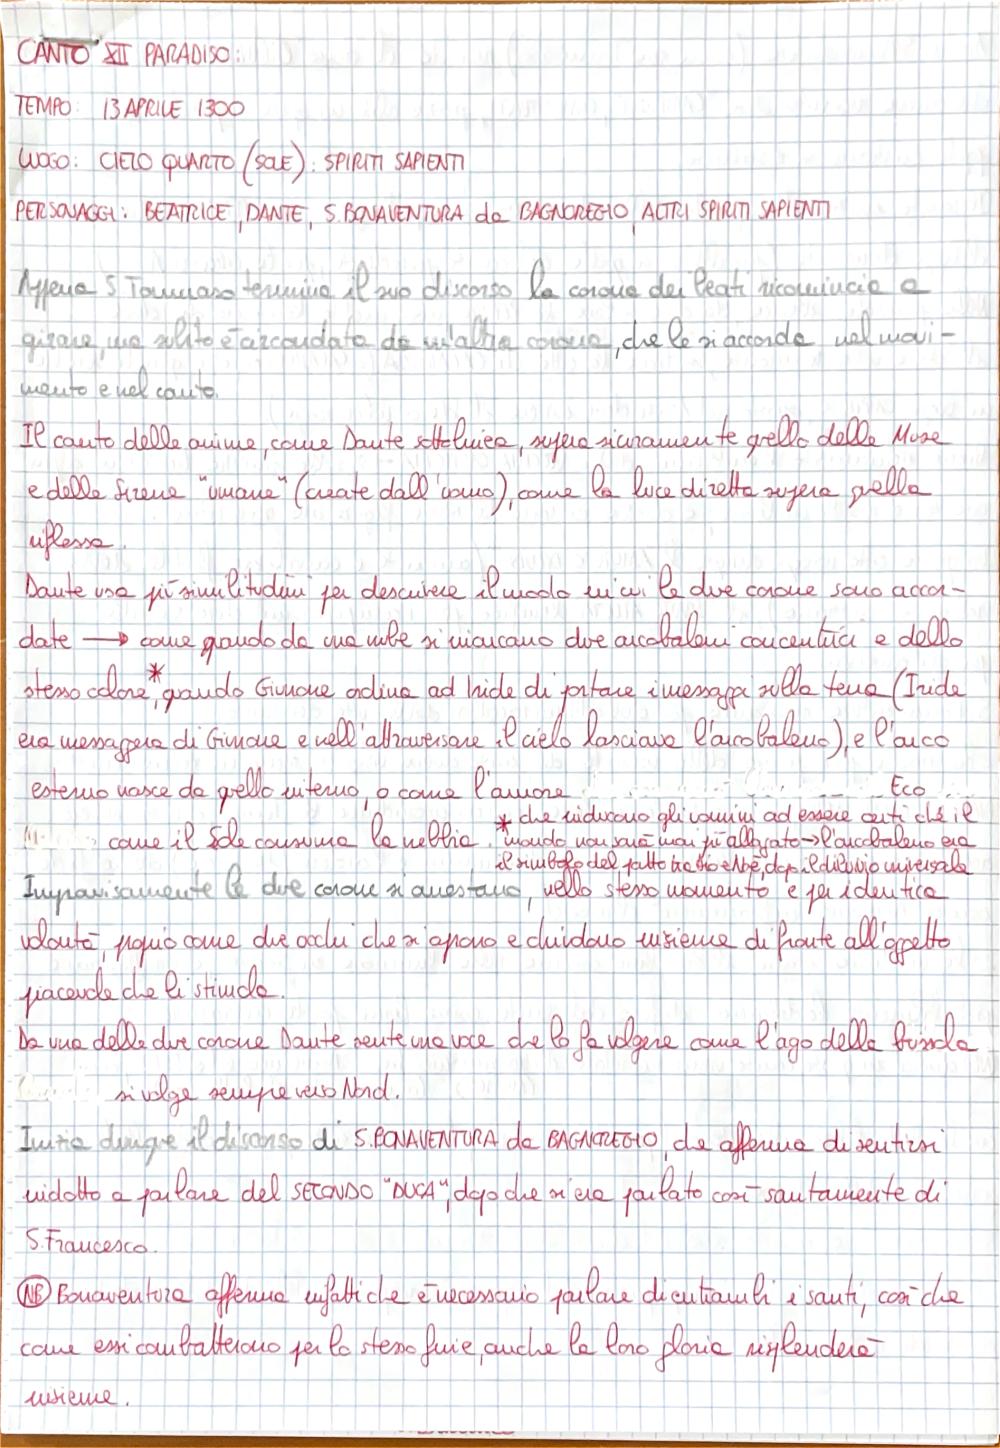 CANTO XII PARADISO:
TEMPO: 13 APRILE 1300
LUOGO: CIELO QUARTO (SOLE): SPIRITI SAPIENTI
PERSONAGGI: BEATRICE, DANTE, S.BONAVENTURA da BAGNOREGIO, ALTRI SPIRITI SAPIENTI
Appena S Tommaso termina il suo discorso la corona dei beati ricomincia a
girare, ma subito è circondata da un'altra corona, che le si accorda nel movi-
mento e nel canto.
Il canto delle anime, come Dante sottolinea, supera sicuramente quello delle Muse
e delle Sirene "umane" (create dall'uomo), come la luce diretta supera quella
riflessa.
Dante usa più similitudini per descrivere il modo in cui le due corone sono accor-
date → come quando da una nube si inarcano due arcobaleni concentrici e dello
stesso colore,* quando Giunone ordina ad Iride di portare i messaggi sulla terra (Iride
era messaggera di Giunone e nell'attraversare il cielo lasciava l'arcobaleno), e l'arco
esterno nasce da quello interno, o come l'amore Eco
* che inducono gli uomini ad essere certi che il
come il Sole consuma la nebbia. mondo non sarà mai più allagato → l'arcobaleno era
il simbolo del patto tra Dio e Noè, dopo il diluvio universale
Improvvisamente le due corone si arrestano, nello stesso momento e per identica
volontà, proprio come due occhi che si aprono e chiudono insieme di fronte all'oggetto
piacevole che li stimola.
Da una delle due corone Dante sente una voce che lo fa volgere come l'ago della bussola
si volge sempre verso Nord.
Inizia dunque il discorso di S.BONAVENTURA da BAGNOREGIO, che afferma di sentirsi
indotto a parlare del SECONDO "DUCA", dopo che si era parlato così santamente di
S.Francesco.
NB Bonaventura afferma infatti che è necessario parlare di entrambi i santi, così che
come essi combatterono per lo stesso fine, anche la loro gloria risplenderà
insieme.